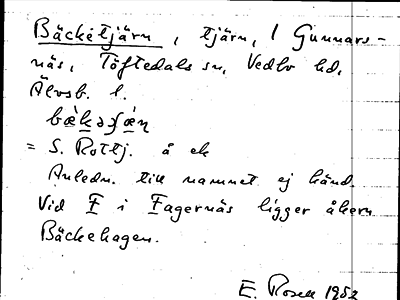 Bäcketjärn, tjärn, i Gunnars-
näs, Töftedals sn, Vedbo hd,
Älvsb. l.
bæ̀kəʃæ̀ɳ
= S. Rottj. å ek
Anledn. till namnet ej känd.
Vid F i Fagernäs ligger åkern
Bäckehagen.
E. Rosell 1952